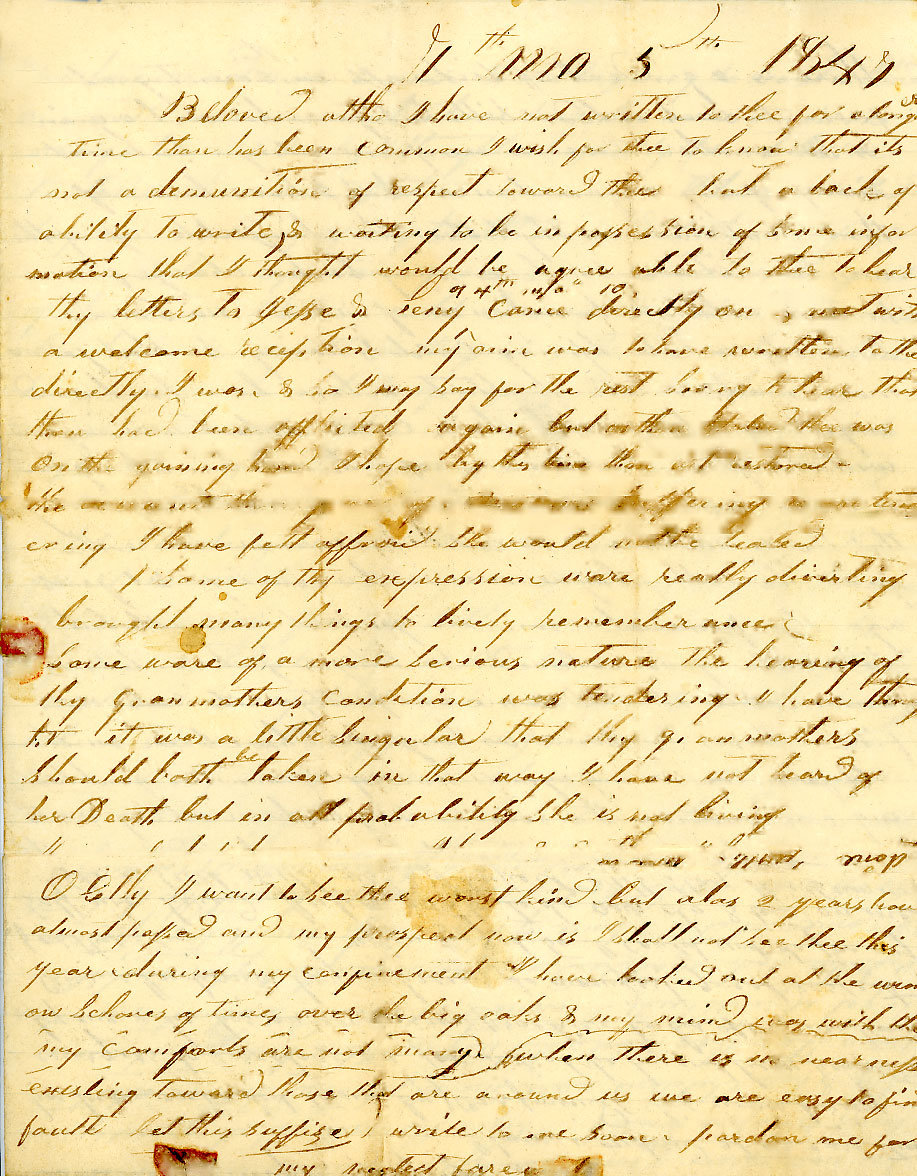 mo 5th 184
Beloved altho I have not written to thee for a longer
time than has been common I wish for thee to know that its
not a demunition of respect toward thee but a lack of
ability to write, & waiting to be in possession of some infor
mation that I thought would be agree able to thee to hear
thy letters to Jesse & came directly on met with
of 4th mo 10
a welcome reception my aim was to have written to thee
directly I was, & so I may say for the rest sorry to hear that
thou had been afflicted again but as thou stated thee was
on the gaining hand I hope by this time thou art restored
the suffering
ering I have felt affraid she would not be healed
Some of thy expression ware really diverting
brought many things to lively remember ance
Some ware of a more serious nature the hearing of
thy granmothers condition was tendering I have thoug
ht it was a little singular that thy granmothers
should both be taken in that way I have not heard of
her Death but in all probability she is not living
O Elly I want to see thee worst kind but alas 2 years have
almost passed and my prospect now is I shall not see thee this
year during my confinement I have looked out at the
over the big oaks & my mind was with thee
my comforts are not many, when there is no nearness
existing toward those that are around us we are easy to fin
fault let this suffize write to me soon pardon me for
my neglect